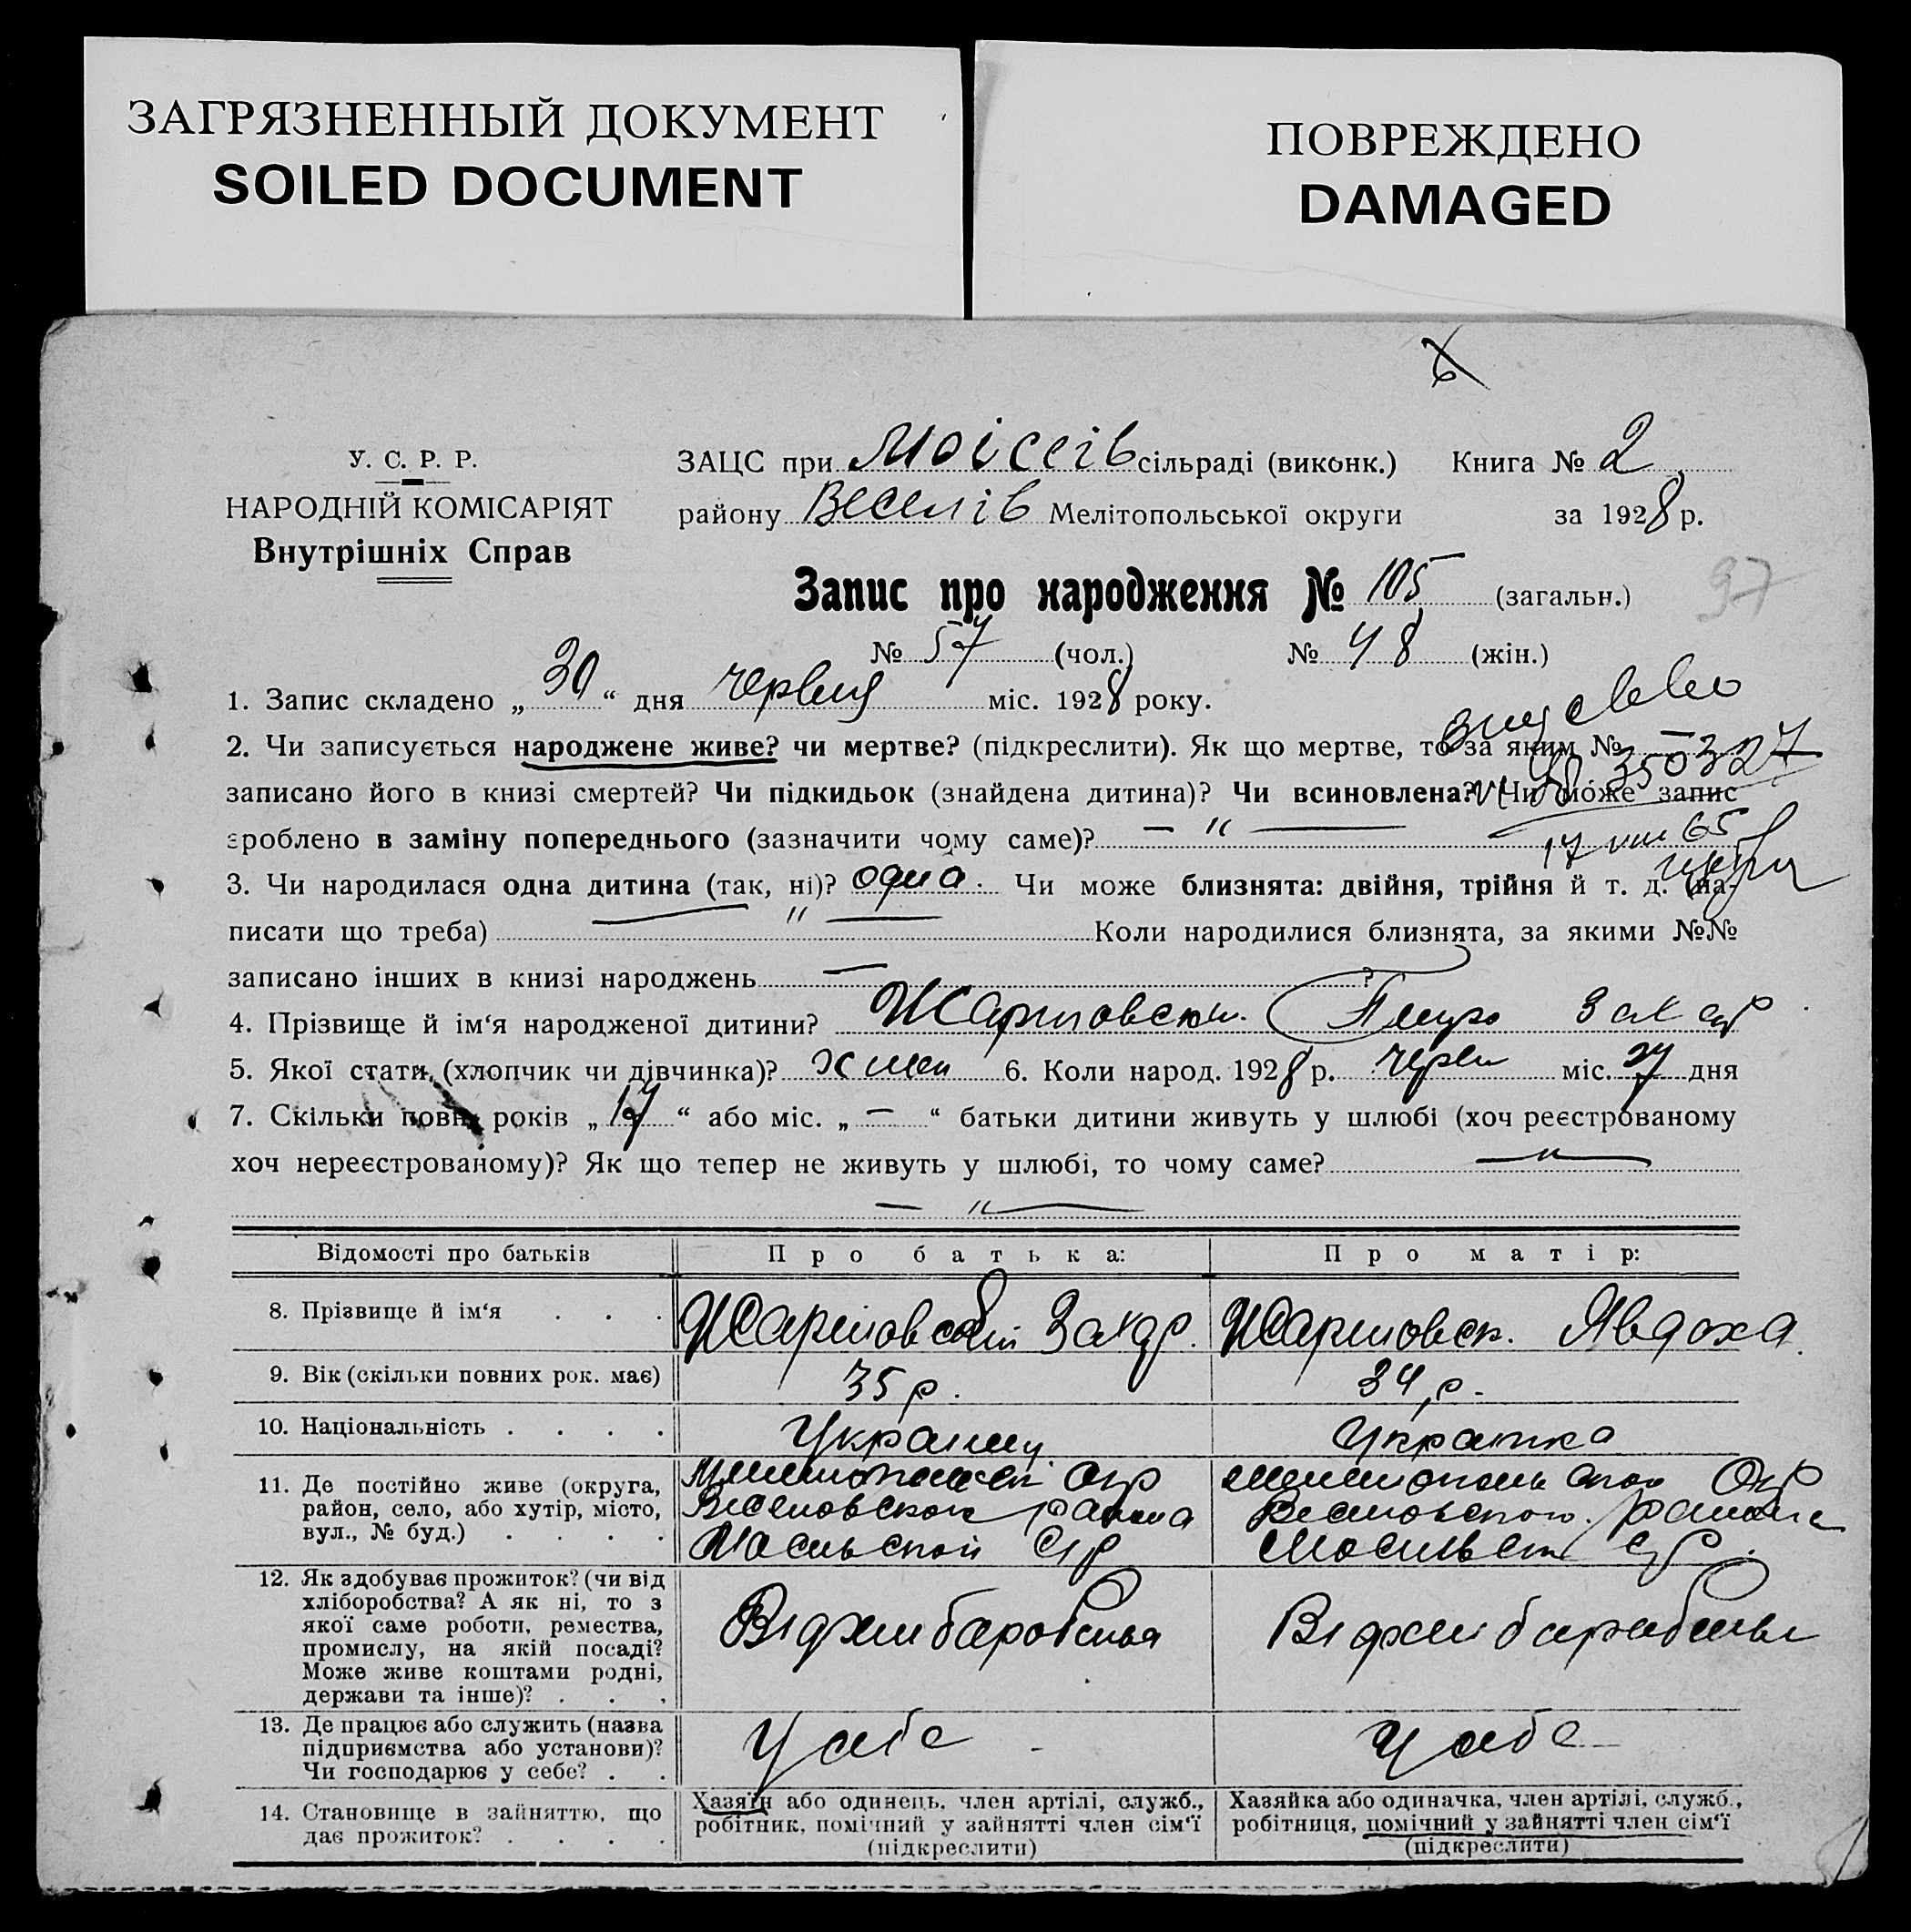 ЗАГРЯЗНЕННЫЙ ДОКУМЕНТ
SOILED DOCUMENT
ПОВРЕЖДЕНО
DAMAGED
У. С. Р. Р.
НАРОДНІЙ КОМІСАРІЯТ
Внутрішніх Справ
ЗАЦС при Моіссеів сільраді (виконк.) Книга № 2
району Веселів Мелітопольської округи за 1928 р.
Запис про народження № 105 (загальн.)
97
№ 57 (чол.) № 48 (жін.)
1. Запис складено „30“ дня червня міс. 1928 року.
2. Чи записується народжене живе? чи мертве? (підкреслити). Як що мертве, то за яким № —
350327
записано його в книзі смертей? Чи підкидьок (знайдена дитина)? Чи всиновлена? Чи може запис
зроблено в заміну попереднього (зазначити чому саме)? — " —
17 VIII 65
3. Чи народилася одна дитина (так, ні)? одна. Чи може близнята: двійня, трійня й т. д. (на-
писати що треба) — " — Коли народилися близнята, за якими №№
записано інших в книзі народжень — ?
4. Прізвище й ім‘я народженої дитини? Петро Захар
5. Якої стати (хлопчик чи дівчинка)? 6. Коли народ. 1928 р. черв міс. 27 дня
7. Скільки повн. років „17“ або міс. „—“ батьки дитини живуть у шлюбі (хоч реєстрованому
хоч нереєстрованому)? Як що тепер не живуть у шлюбі, то чому саме? — " —
— " —
Відомості про батьків Про батька: Про матір:
8. Прізвище й ім‘я . . . Захар. Явдоха.
9. Вік (скільки повних рок. має) 35 р. 34 р.
10. Національність . . . . Українец Українка
11. Де постійно живе (округа, район, село, або хутір, місто, вул., № буд.) . . . .
Окр Окр
Веселовского района Веселовского района
12. Як здобуває прожиток? (чи від
хліборобства? А як ні, то з
якої саме роботи, ремества,
промислу, на якій посаді?
Може живе коштами родні,
держави та інше)? . . .
Від хліборобства Від хліборобства
13. Де працює або служить (назва
підприємства або установи)?
Чи господарює у себе? . .
У себе У себе
14. Становище в зайняттю, що
дає прожиток? . . . .
Хазяїн або одинець, член артілі, служб.,
робітник, помічний у зайнятті член сім‘ї
(підкреслити)
Хазяйка або одиначка, член артілі, служб.,
робітниця, помічний у зайнятті член сім‘ї
(підкреслити)